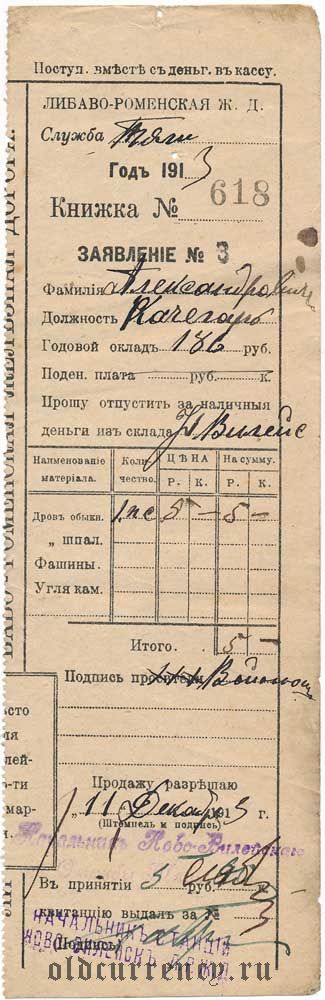 Поступ. вмѣстѣ съ деньг. въ кассу.
ЛИБАВО-РОМЕНСКАЯ Ж. Д.
Служба Тяги
Годъ 1913
Книжка № 618
ЗАЯВЛЕНІЕ № 3
Фамилія Александровичъ
Должность Качегаръ
Годовой окладъ 186 руб.
Поден. плата руб. к.
Прошу отпустить за наличныя
деньги изъ склада Н. Вилейс
Наименованіе матеріала. Количество. ЦѢНА Р. К. На сумму. Р. К.
Дровъ обыкн. 1 пс 5 — 5 —
„ шпал.
Фашины.
Угля кам.
Итого. 5 —
Подпись просителя
Продажу разрѣшаю
„11„ Декаб 1913 г.
(Штемпель и подпись)
Начальникъ Ново-Вилейскаго
Въ принятіи 5 руб. к.
квитанцію выдалъ за №
НАЧАЛЬНИКЪ СТАНЦІИ
НОВО-ВИЛЕЙСКЪ
(Подпись)
oldcurrency.ru